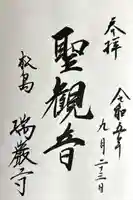 参拝
令和五年
九月二三日
聖観音
松島
瑞巌寺